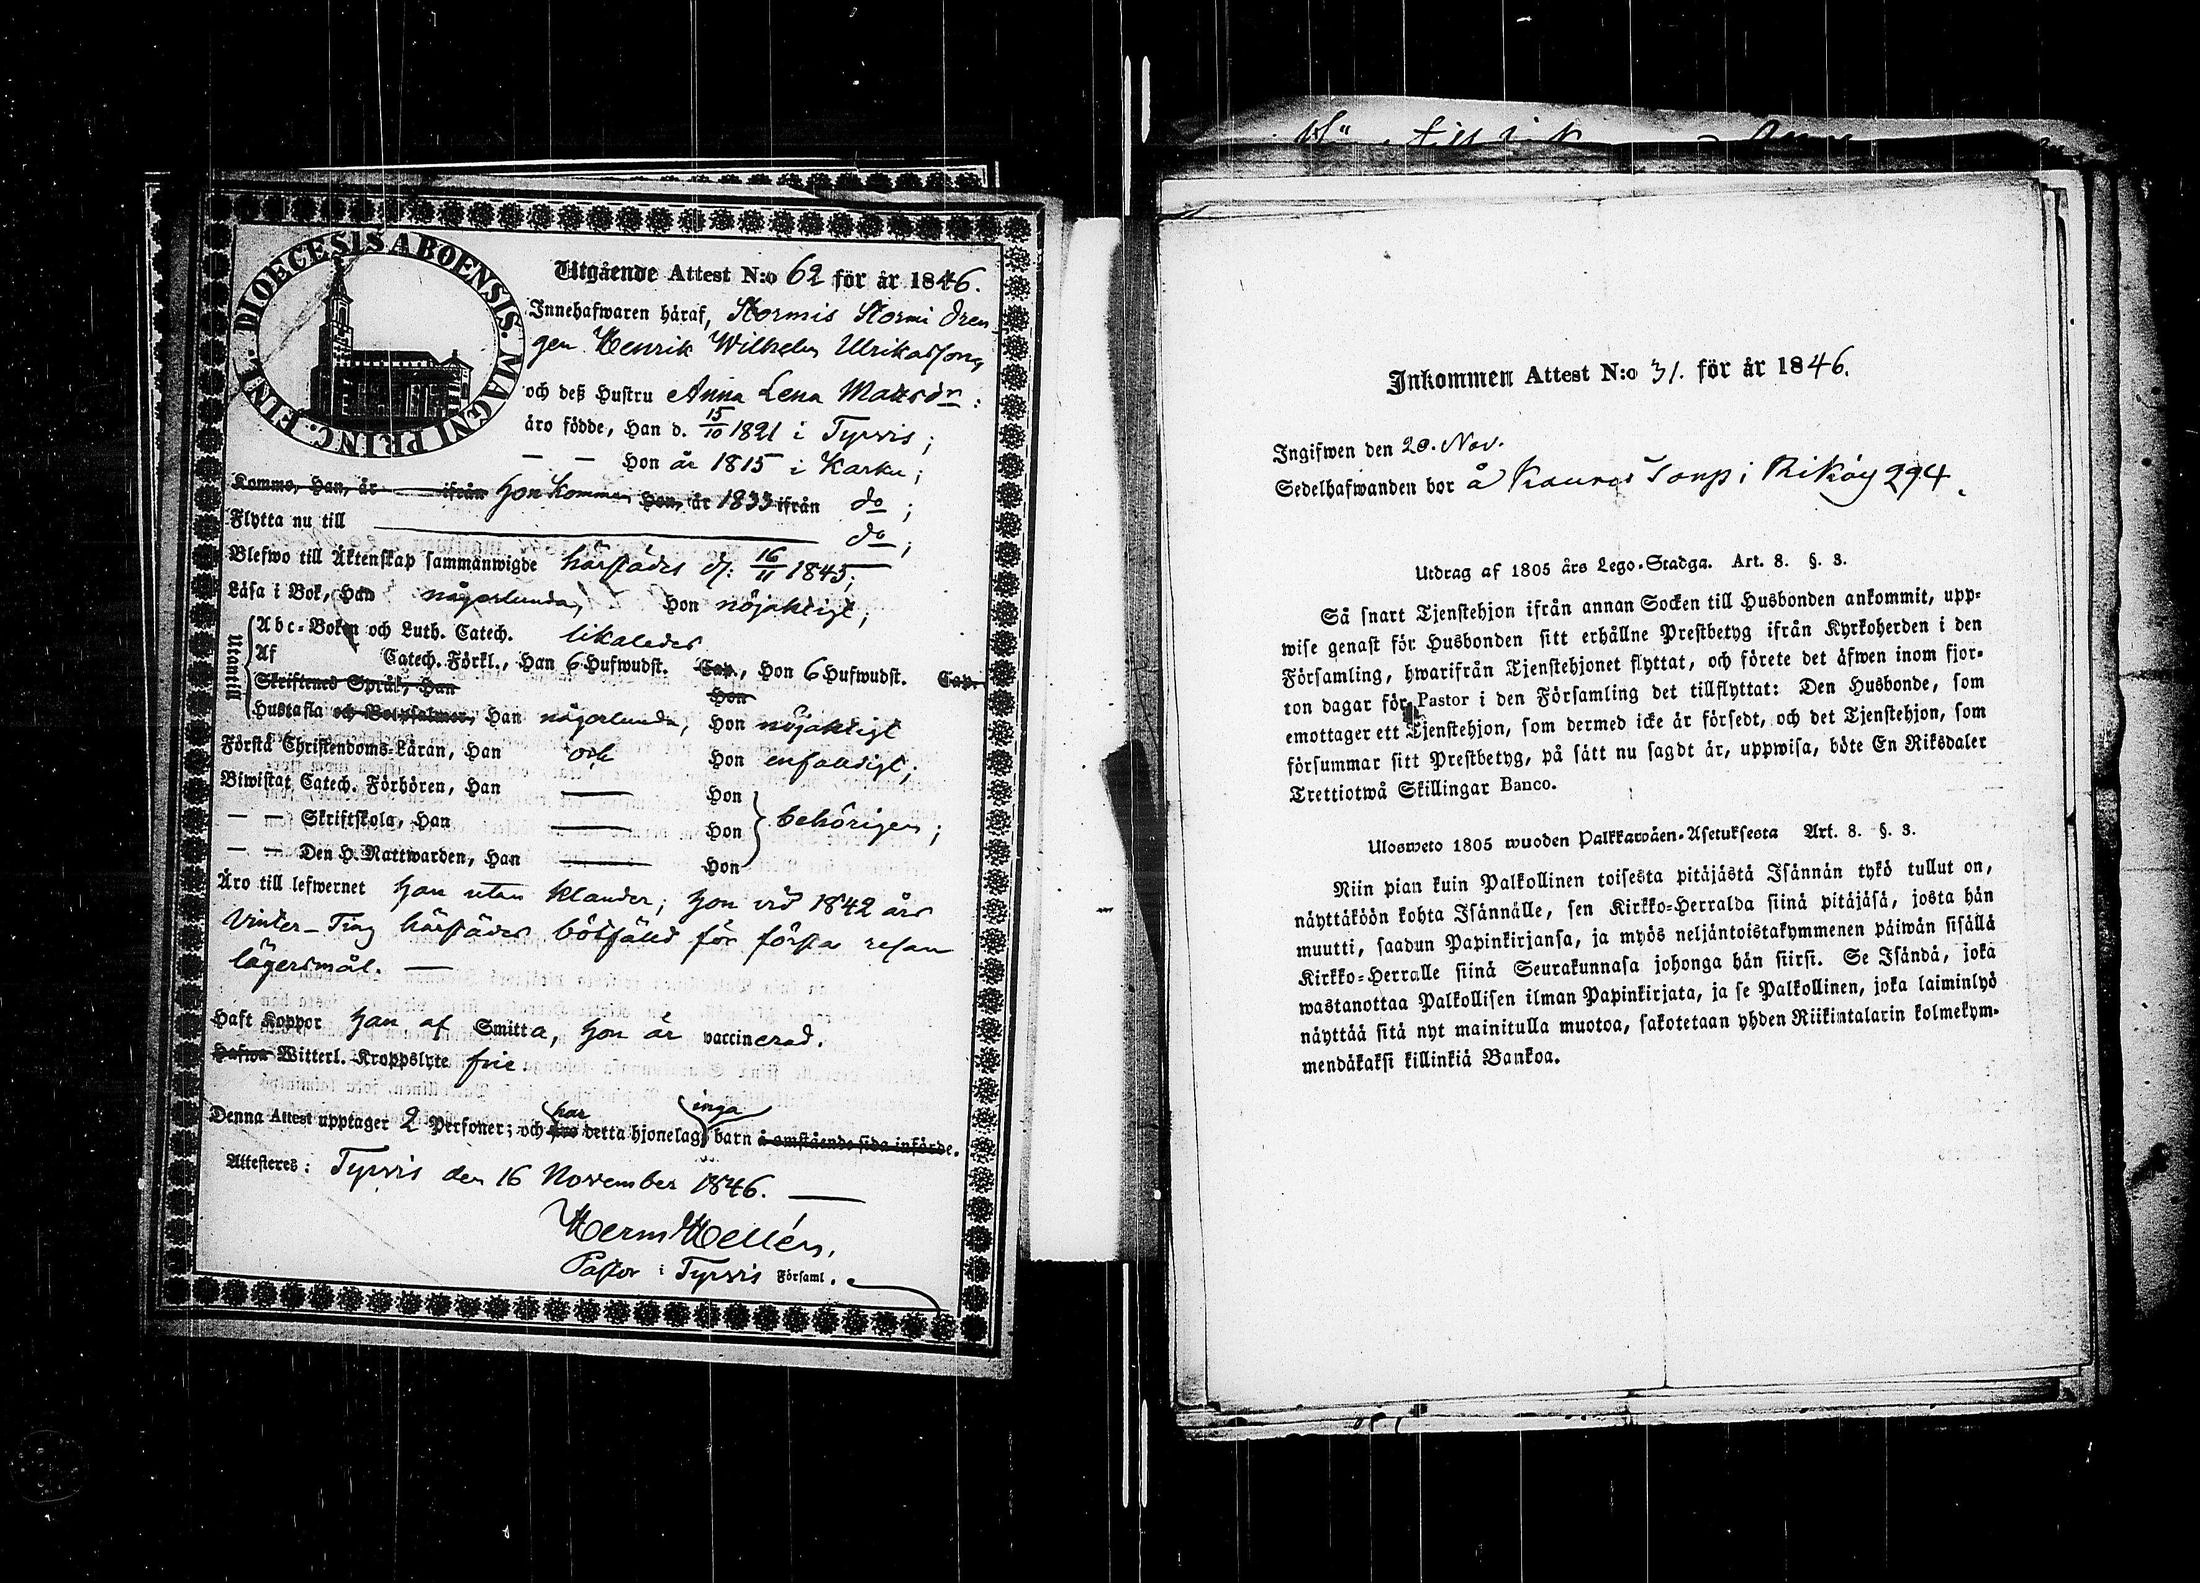 DIOECESIS ABOENSIS. MAGNI PRINC. FINL.
Utgående Attest N:o 62 för år 1846.
Innehafwaren häraf, Stormis Stormi dren-
gen Henrik Wilhelm Ulrikasson,
och deß Hustru Anna Lena Matsdr:
äro födde, Han d. 15/10 1821 i Tyrvis;
— — Hon år 1815 i Karku;
Kommo, Han, år — ifrån Hon kommen Hon, år 1833 ifrån do;
Flytta nu till do;
Blefwo till Äktenskap sammanwigde härstädes d: 16/11 1845;
Läsa i Bok, Han någorlunda, Hon nöjaktigt;
Utantill
Abc-Boken och Luth. Catech. likaledes
Af Catech. Förkl., Han 6 Hufwudst. Cap., Hon 6 Hufwudst. Cap.
Skriftenes Språk, Han Hon
Hustafla och Botpsalmer, Han någorlunda, Hon nöjaktigt
Förstå Christendoms-Läran, Han och Hon enfaldigt;
Biwistat Catech. Förhören, Han — Hon
— — Skriftskola, Han — Hon behörigen;
— — Den H. Nattwarden, Han — Hon
Äro till lefwernet Han utan klander; Hon vid 1842 års
Vinter-Ting härstädes bötfälld för första resan
lägersmål. —
Haft Koppor Han af Smitta, Hon är vaccinerad.
Hafwa Witterl. Kroppslyte frie.
Denna Attest upptager 2 Personer; och äro har detta hjonelag inga barn å omstående sida införde.
Attesteres: Tyrvis den 16 November 1846. —
Herm Hellén,
Pastor i Tyrvis Församl.
Inkommen Attest N:o 31. för år 1846.
Ingifwen den 20. Nov.
Sedelhafwanden bor å Torp i 294.
Utdrag af 1805 års Lego-Stadga. Art. 8. §. 3.
Så snart Tjenstehjon ifrån annan Socken till Husbonden ankommit, upp-
wise genast för Husbonden sitt erhållne Prestbetyg ifrån Kyrkoherden i den
Församling, hwarifrån Tjenstehjonet flyttat, och förete det äfwen inom fjor-
ton dagar för Pastor i den Församling det tillflyttat: Den Husbonde, som
emottager ett Tjenstehjon, som dermed icke är försedt, och det Tjenstehjon, som
försummar sitt Prestbetyg, på sätt nu sagdt är, uppwisa, böte En Riksdaler
Trettiotwå Skillingar Banco.
Ulosweto 1805 wuoden Palkkawäen-Asetuksesta Art. 8. §. 3.
Niin pian kuin Palkollinen toisesta pitäjästä Isännän tykö tullut on,
näyttäköön kohta Isännälle, sen Kirkko-Herralda siinä pitäjäsä, josta hän
muutti, saadun Papinkirjansa, ja myös neljäntoistakymmenen päiwän sisällä
Kirkko-Herralle siinä Seurakunnasa johonga hän siirsi. Se Isändä, joka
wastanottaa Palkollisen ilman Papinkirjata, ja se Palkollinen, joka laiminlyö
näyttää sitä nyt mainitulla muotoa, sakotetaan yhden Riikintalarin kolmekym-
mendäkaksi killinkiä Bankoa.